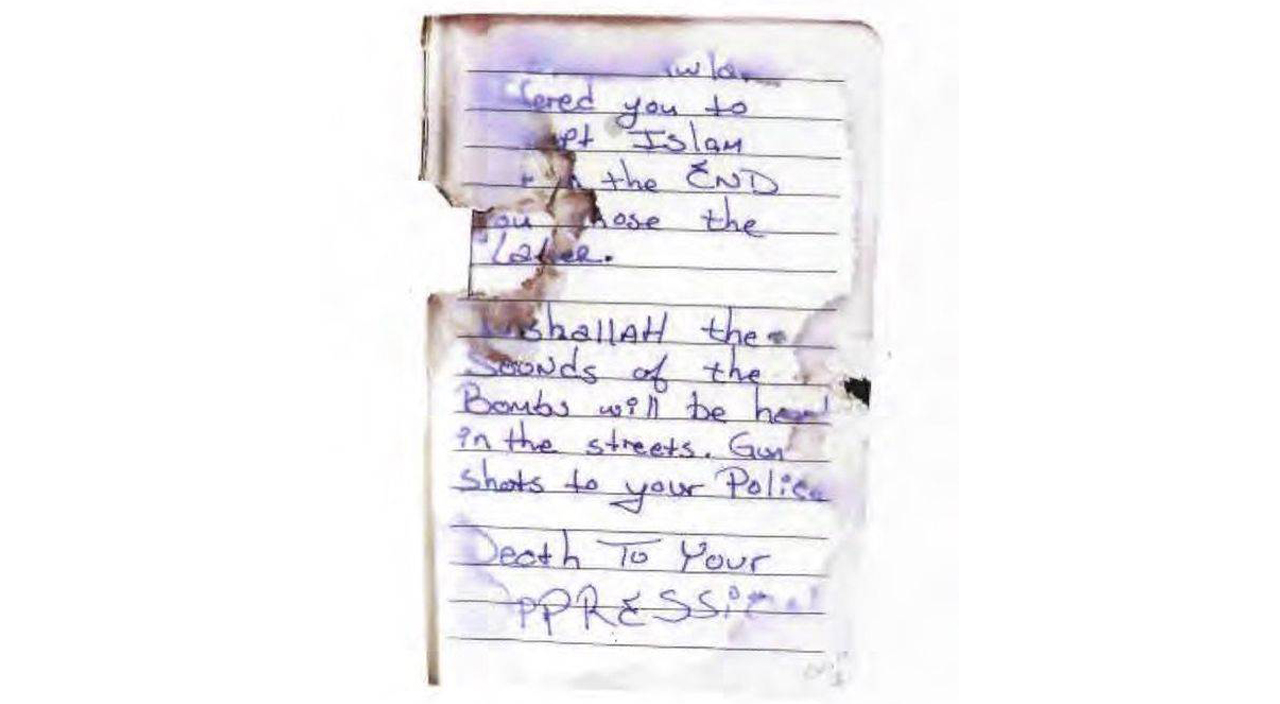 you to
Islam
the END
the
Later.
InshallAH the
Sounds of the
Bombs will be heard
in the streets. Gun
shots to your Police
Death To Your
OPPRESSION